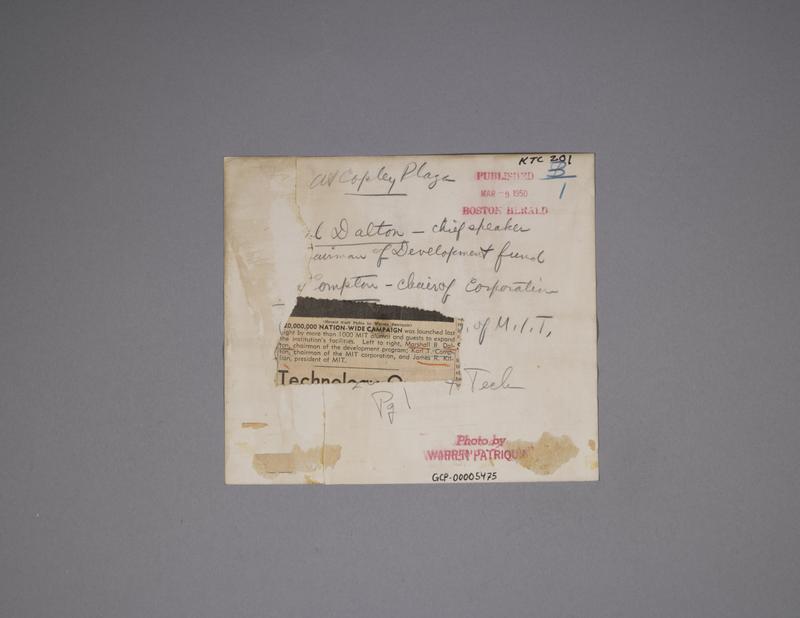 KTC 201
at Copley Plaza
PUBLISHED
B
1
MAR - 9 1950
BOSTON HERALD
Dalton - chief speaker
airman of Development fund
ompton - chair of Corporation
(Herald Staff Photo by Warren Patriquin)
$20,000,000 NATION-WIDE CAMPAIGN was launched last
night by more than 1000 MIT alumni and guests to expand
the institution's facilities. Left to right, Marshall B. Dal-
ton, chairman of the development program; Karl T. Comp-
ton, chairman of the MIT corporation, and James R. Kil-
lian, president of MIT.
of M.I.T,
Technology
Tech
Pg 1
Photo by
WARREN PATRIQUIN
GCP-00005475